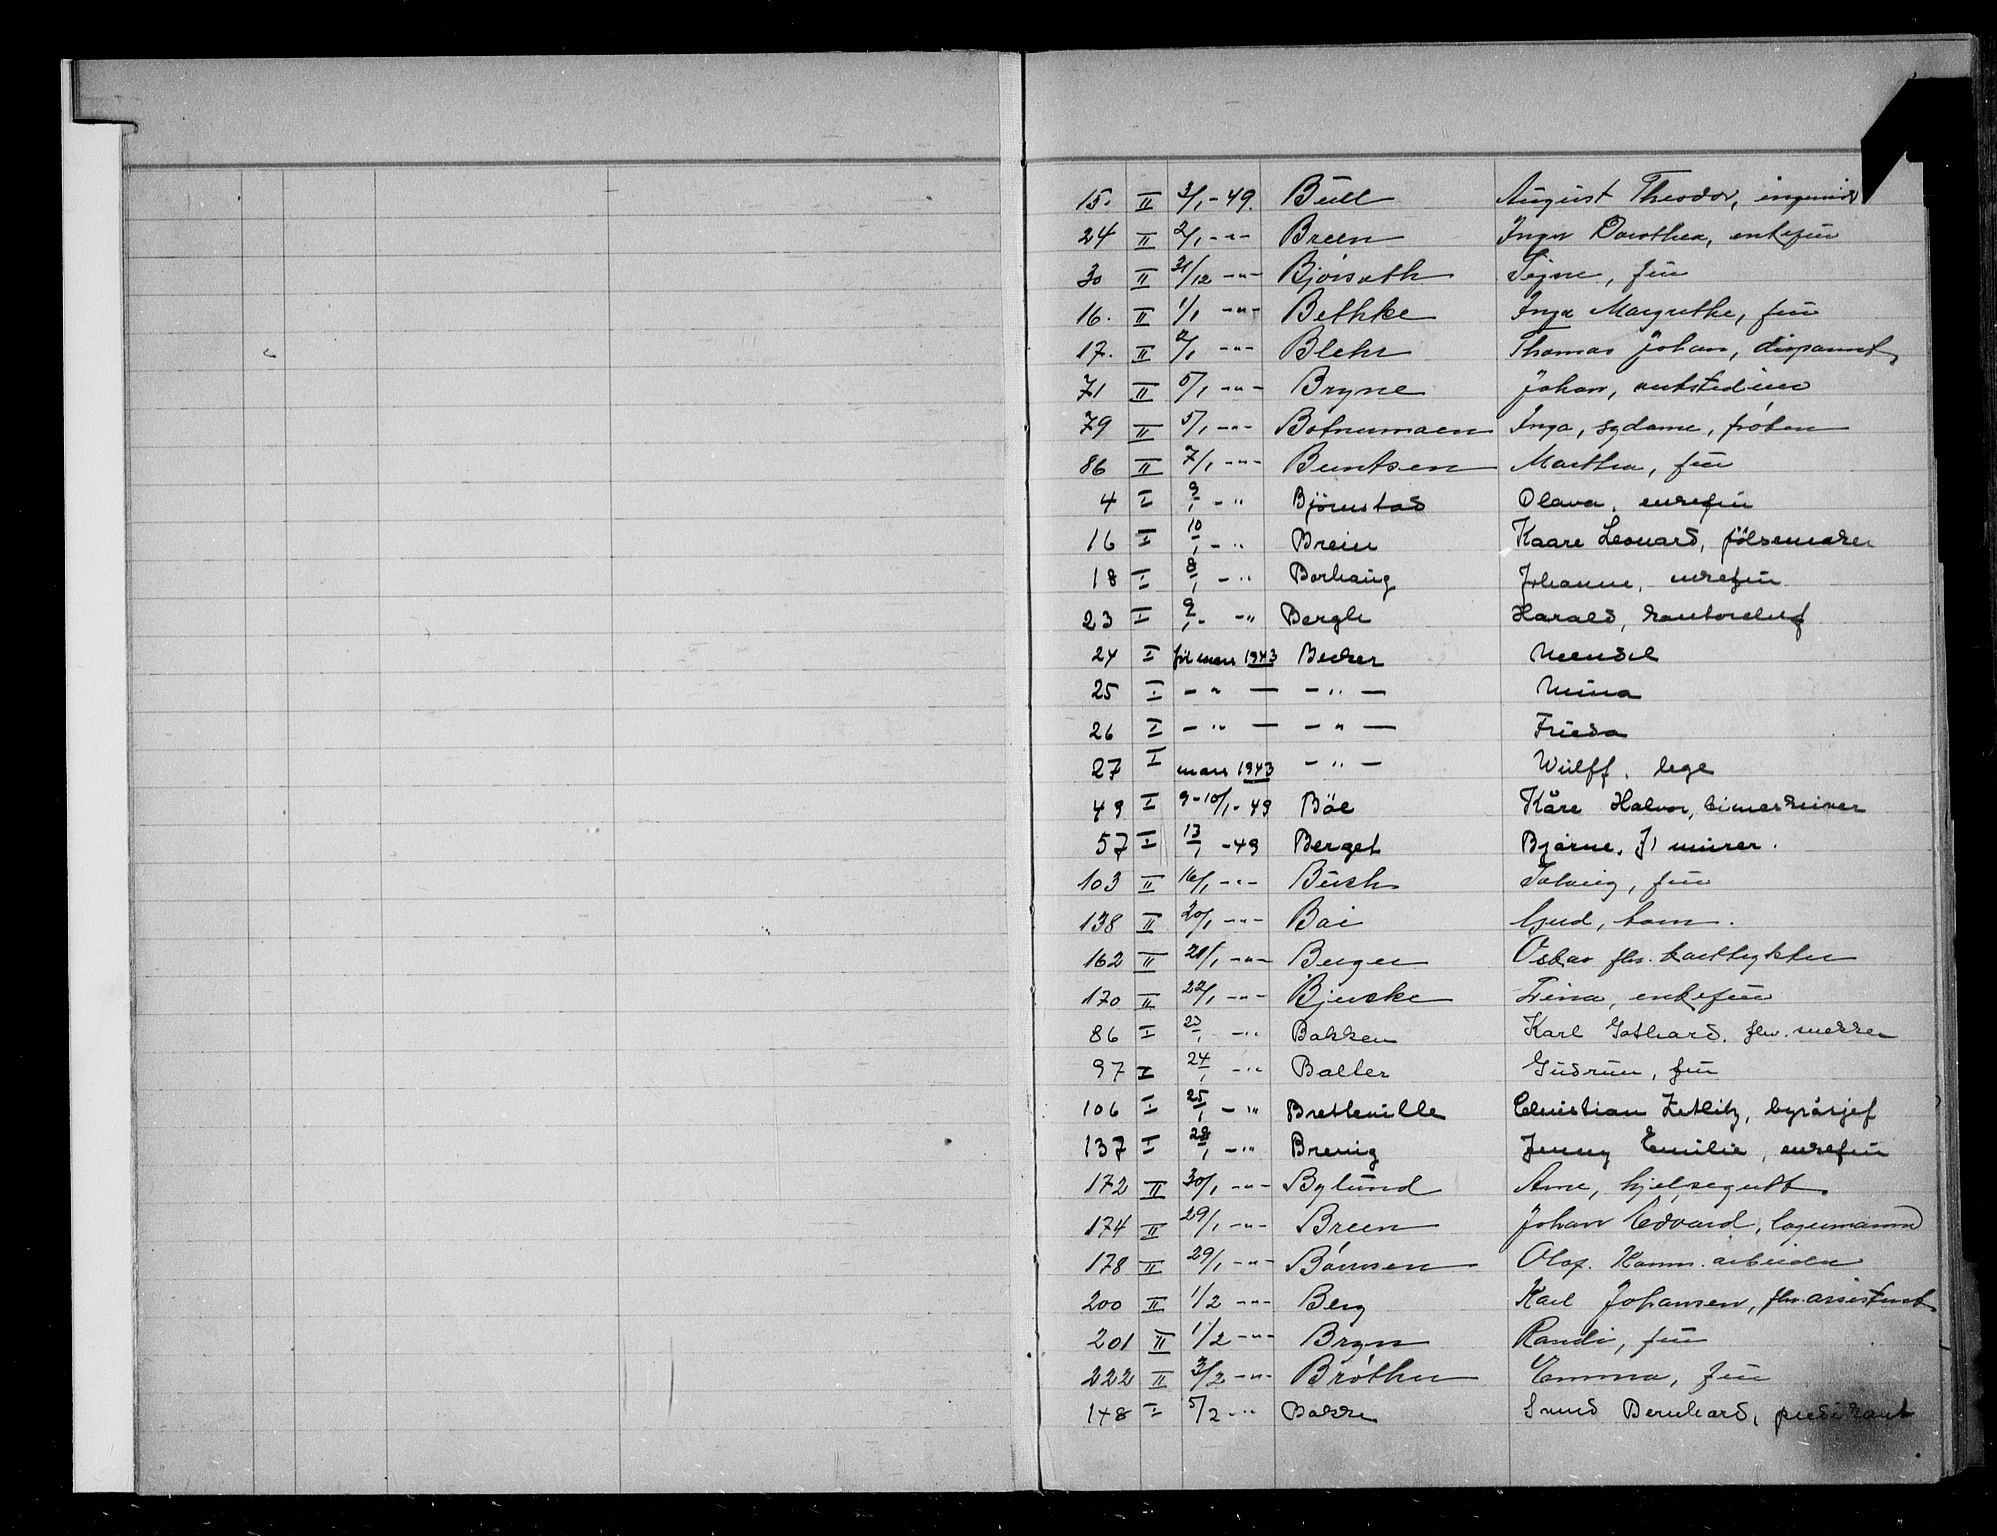 15. II 3/1 - 49. Bull August Theodor, ingeniør
24 II 2/1 - " - Breen Inger Dorothea, enkefru
30 II 31/12 - " - Bjørseth Signe, fru
16. II 1/1 - " - Bethke Inga Margrethe, fru
17. II 2/1 - " - Blehr Thomas Johan, disponent
71 II 5/1 - " - Bryne Johan,
79 II 5/1 - " - Inga, sydame, frøken
86 II 7/1 - " - Berntsen Martha, fru
4 I 9/1 - " Bjørnstad Olava, enkefru
16 I 10/1 - " Brein Kaare Leonard, pølsemaker
18 I 8/1 - " Borhaug Johanne, enkefru
23 I 9/1 - - " Bergh Harald, kontorchef
24 I før mars 1943 Becker Mendel
25 I - " - - " - Mina
26 I - " - - " - Frieda
27 I mars 1943 - " - Wulff, lege
49 I 9-10/1 - 49 Bøe Kåre Halvor,
57 I 13/1 - 49 Berget Bjarne, J) murer.
103 II 16/1 - " - Busch Solveig, fru
138 II 20/1 - " - Bai Gjud, barn.
162 II 21/1 - " - Berger Oskar fhv.
170 II 22/1 - " - Bjerke Lina, enkefru
86 I 23/1 - " Bakken Karl Gothard, fhv. snekker
97 I 24/1 - " Baller Gudrun, fru
106 I 25/1 - " Bretteville Christian Zetlitz, byråsjef
137 I 28/1 - " Brevig Jenny Emilie, enkefru
172 II 30/1 - " - Bylund Arne, hjelpegutt
174 II 29/1 - " - Breen Johan Edvard, lagermann
178 II 29/1 - " - Olaf. Komm. arbeider
200 II 1/2 - " - Berg Karl Johansen, fhv. assistent
201 II 1/2 - " - Bryn Randi, fru
222 II 3/2 - " - Brøther Emma, fru
148 I 5/2 - " Bakke Bernhard, predikant